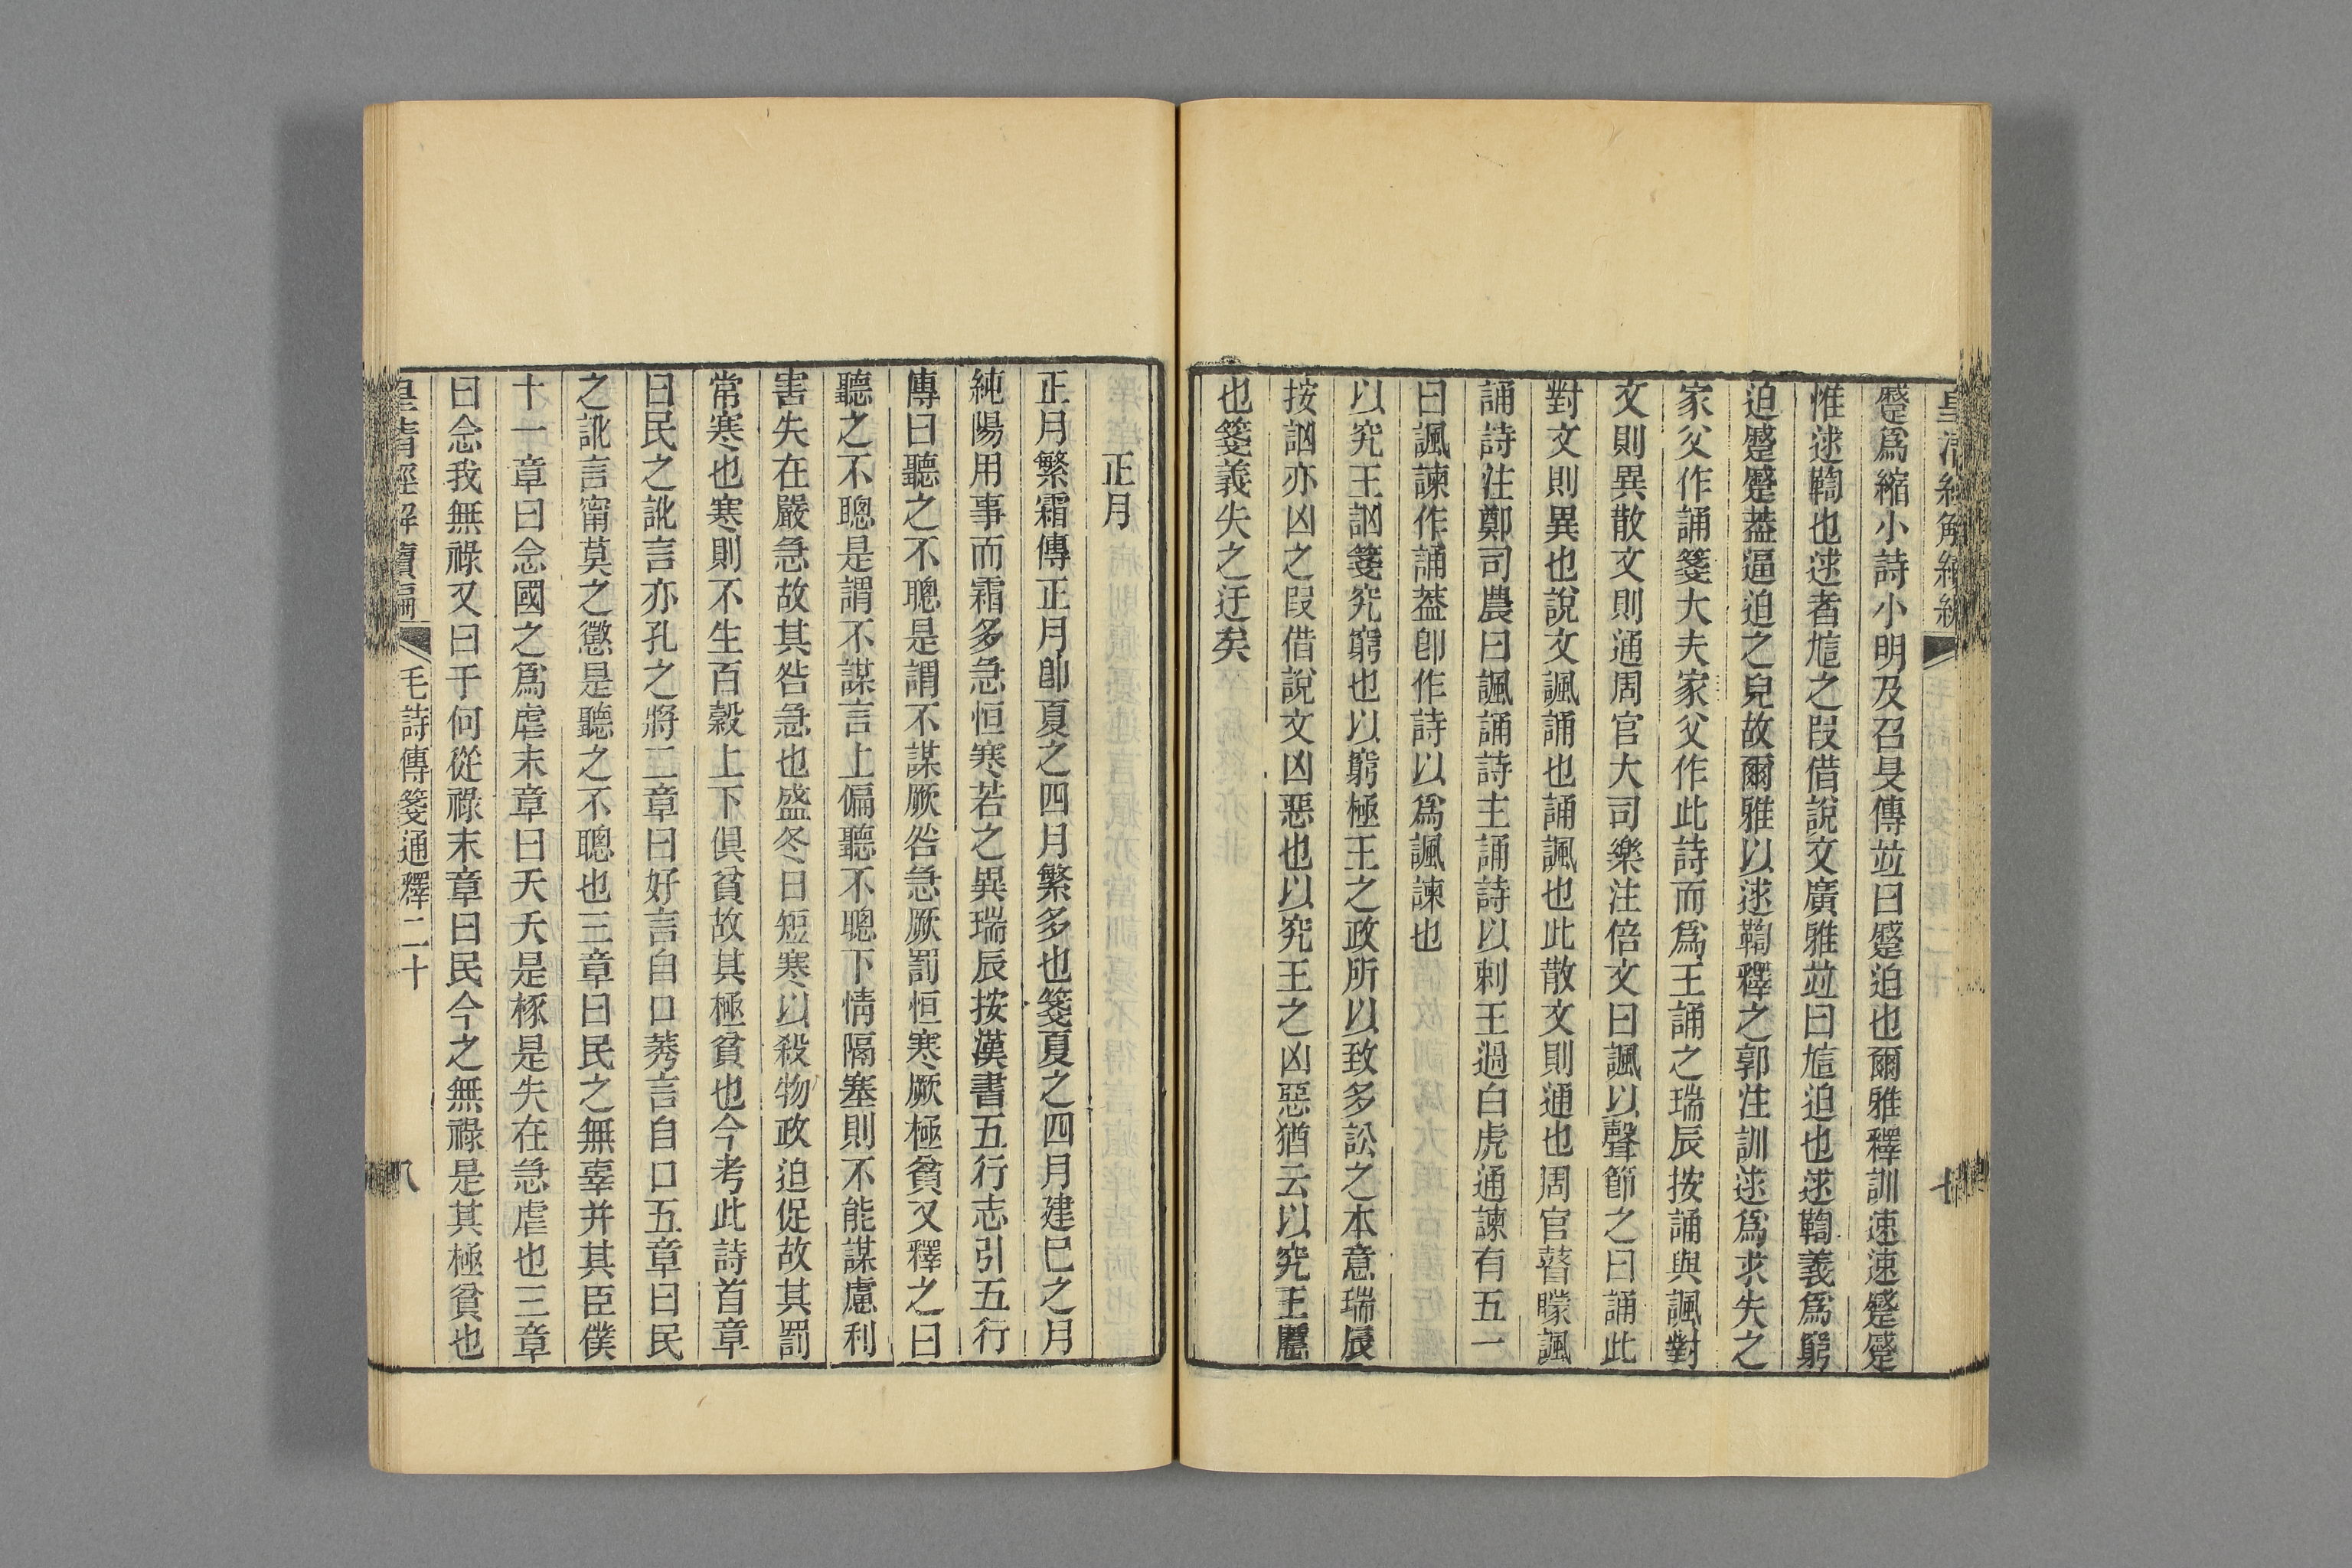 蹙爲縮小詩小明及召旻傳竝曰蹙迫也爾雅釋訓速速蹙蹙
惟逑鞫也逑者㐣之叚借說文廣雅竝曰㐣迫也逑鞫義爲窮
迫蹙蹙葢逼迫之皃故爾雅以逑鞫釋之郭注訓逑爲求失之
家父作誦箋大夫家父作此詩而爲王誦之瑞辰按誦與諷對
文則異散文則通周官大司樂注倍文曰諷以聲節之曰誦此
對文則異也說文諷誦也誦諷也此散文則通也周官瞽矇諷
誦詩注鄭司農曰諷誦詩主誦詩以刺王過白虎通諫有五一
曰諷諫作誦葢卽作詩以爲諷諫也
以究王訩箋究窮也以窮極王之政所以致多訟之本意瑞辰
按訩亦凶之叚借說文凶惡也以究王之凶惡猶云以究王慝
也箋義失之迂矣
正月
正月繁霜傳正月卽夏之四月繁多也箋夏之四月建巳之月
純陽用事而霜多急恒寒若之異瑞辰按漢書五行志引五行
傳曰聽之不聰是謂不謀厥咎急厥罰恒寒厥極貧又釋之曰
聽之不聰是謂不謀言上偏聽不聰下情隔塞則不能謀慮利
害失在嚴急故其咎急也盛冬日短寒以殺物政迫促故其罰
常寒也寒則不生百穀上下俱貧故其極貧也今考此詩首章
曰民之訛言亦孔之將二章曰好言自口莠言自口五章曰民
之訛言甯莫之懲是聽之不聰也三章曰民之無辜并其臣僕
十一章曰念國之爲虐末章曰天夭是椓是失在急虐也三章
曰念我無祿又曰于何從祿末章曰民今之無祿是其極貧也
皇清經解續編 毛詩傳箋通釋二十 八